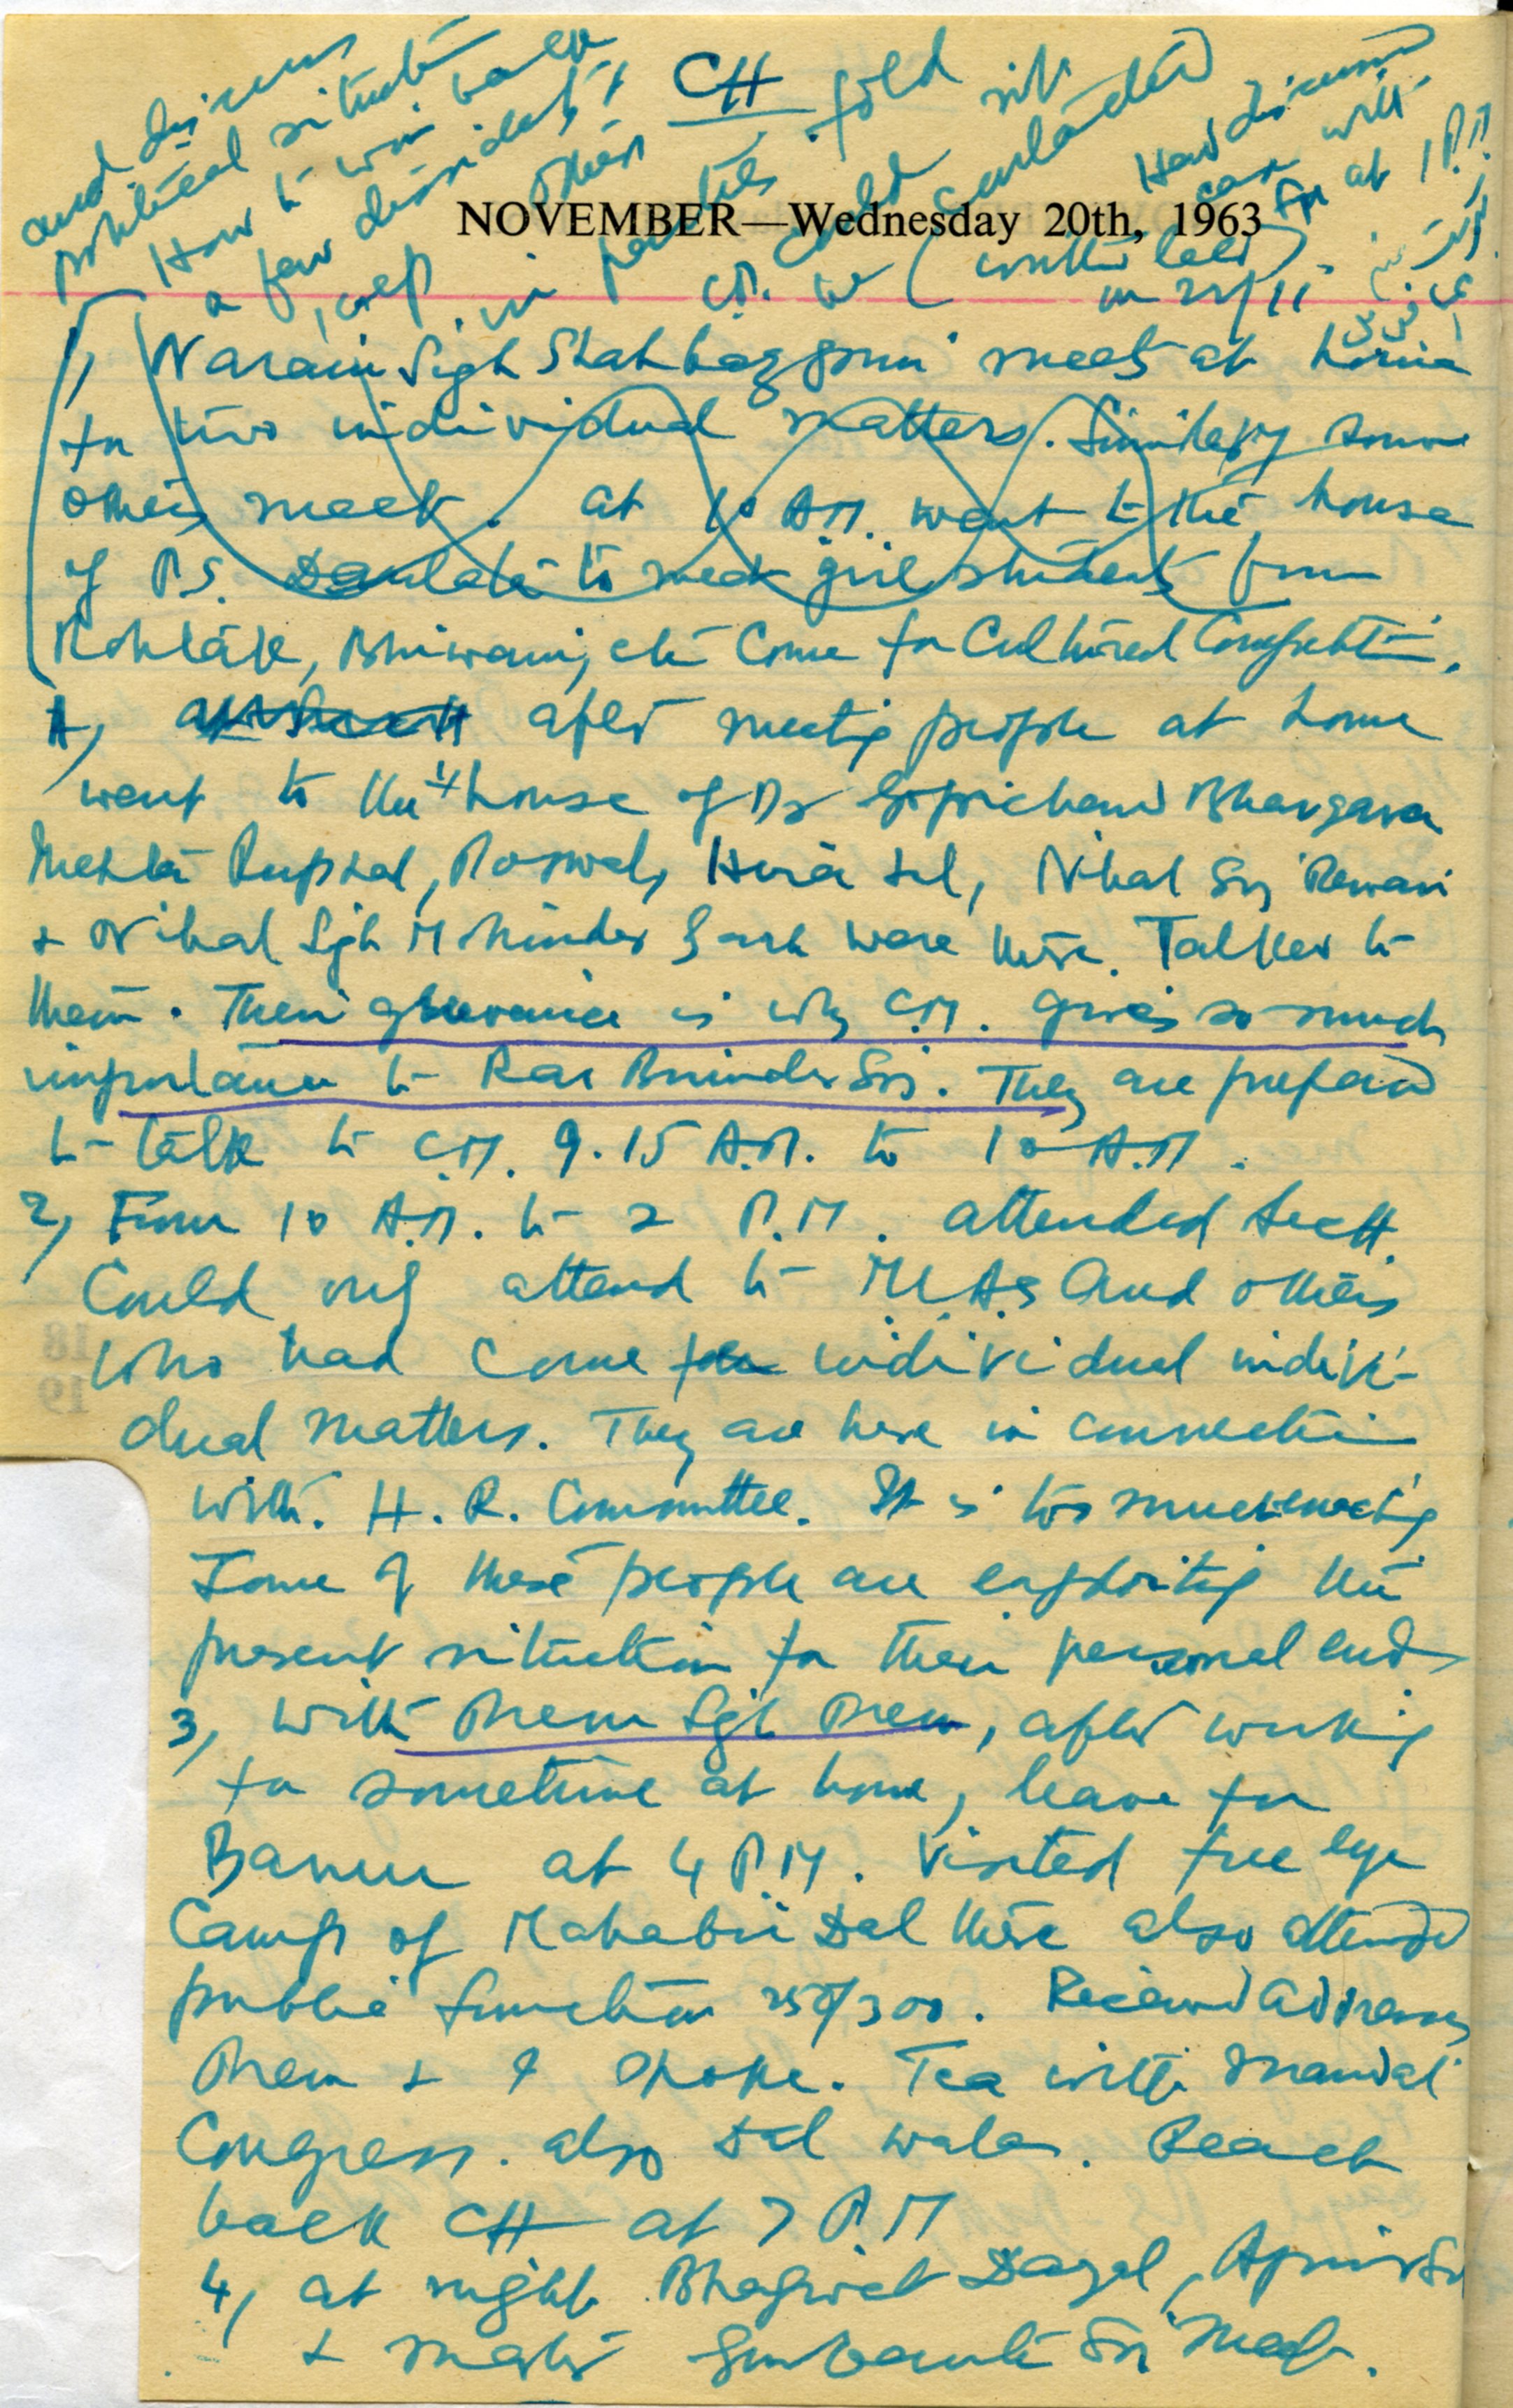 CH
NOVEMBER—Wednesday 20th, 1963
1, Narain Sigh Shahbazpuri meets at home
for two individual matters. Similarly some
others meet. At 10 A.M. went to the house
of P.S. Daulata to meet girl students from
Rohtak, Bhiwani, etc come for Cultural Competition.
1, after meeting people at home
went to the house of Dr Gopichand Bhargava
Mehta Rupial, Hira Lal, Nihal Sig Rewari
+ Nihal Sigh Mohinder Garh were there. Talked to
them. Their grievance is why C.M. gives so much
importance to Rao Birinder Sig. They are prepared
to talk to C.M. 9.15 A.M. to 10 A.M.
2, From 10 A.M. to 2 P.M. attended Sectt.
Could only attend to MLAs and others
who had come for individual indivi-
dual matters. They are here in connection
with H.R. Committee. It is too much
Some of these people are exploiting the
present situation for their personal ends
3, With Prem Sigh Prem, after working
for sometime at home, leave for
Banur at 4 P.M. Visited free eye
Camp of Mahabir Dal there also attended
public function 250/300. Received Address
Prem + I spoke. Tea with Mandal
Congress. also Dal walas. Reach
back CH at 7 P.M
4, at night Bhagwat Dayal, Ajmer Sig
+ Master Gurbanta Sig Meet.
and discuss
political situation
How to win back
a few dissidents +
others
in parties fold
C.M. could
(written later
on 21/11
Had discussed
at 1 P.M.